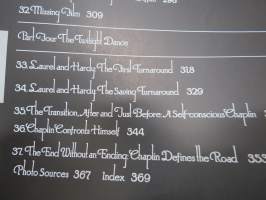 32. Missing Film 309
Part Four: The Twilight Dance
33. Laurel and Hardy: The First Turnaround 318
34. Laurel and Hardy: The Saving Turnaround 329
35. The Transition, After and Just Before: A Self-conscious Chaplin
36. Chaplin Confronts Himself 344
37. The End Without an Ending: Chaplin Defines the Road 353
Photo Sources 367 Index 369